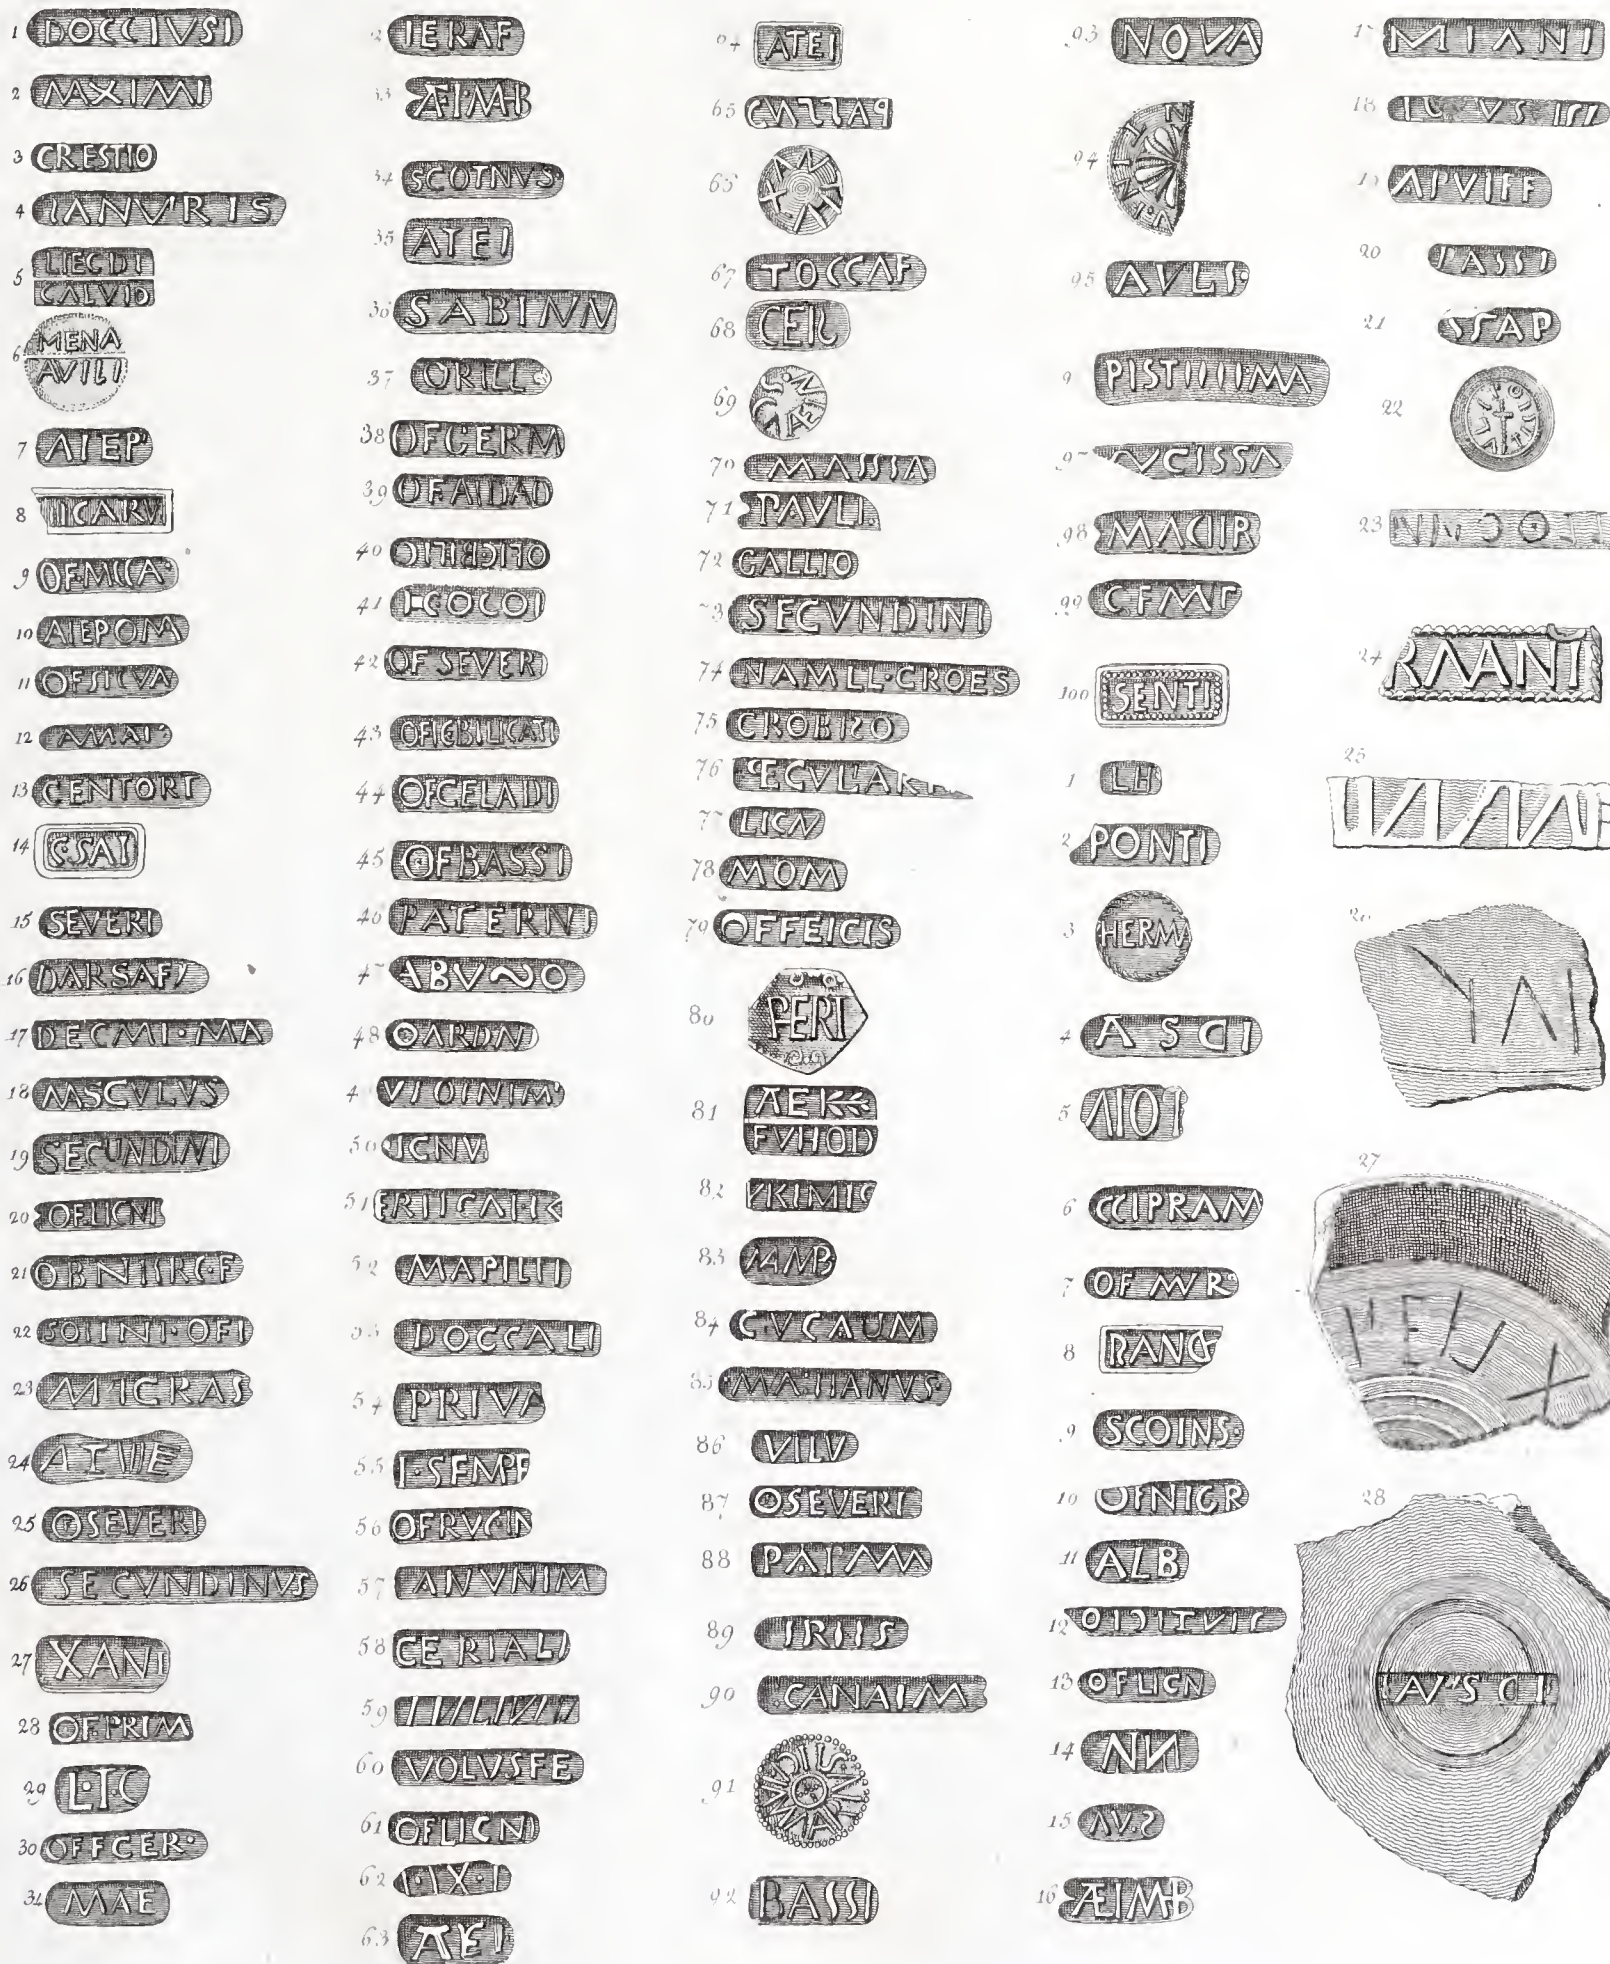 1 DOCCIVSI
2 MAXIMI
3 CRESTIO
4 IANVRIS
5 LIECDI
CALVID
6 MENA
AVILI
7 AIEP
8 IICARV
9 OF.MCCA
10 AIEPOM
11 OFSILVA
12
13 CENTORI
14 C.SAT
15 SEVERI
16 DARSAF
17 DECMI·MA
18 MASCVLVS
19 SECUNDINI
20 OF.LICNI
21 OBNIIRC·F
22 SOIINI·OFI
23 MICRAS
24 AIIIE
25 OSEVERI
26 SECVNDINVS
27 XANI
28 OF.PRIM
29 L·T·C
30 OFFCER·
31 MAE
32 IERAF
33 ÆI·MB
34 SCOTNVS
35 ATEI
36 SABINN
37 ORILL
38 OFCERM
39
40
41 ICOCOI
42 OF SEVERI
43
44 OFCELADI
45 OFBASSI
46 PATERNI
47
48 OARDN
4 VIOINIM
50 ICNV
51
52 MAPILTI
53 DOCCALI
54 PRIVA
55 I·SEMPE
56 OFRVCIN
57 ANVNIM
58 CERIALI
59
60 VOLVSFE
61 OFLICNI
62 I·IX·I
63 ATEI
64 ATEI
65
66 XANTI
67 TOCCAF
68 CER
69
70 MASSIA
71 PAVLI.
72 GALLIO
73 SECVNDINI
74 NAMLL·CROES
75 CROBISO
76 SECVLAR
77 LICN
78 MOM
79 OFFEICIS
80 PERI
81 AEK
FVHOD
82 VKIMIC
83 MMB
84 CVCAUM
85
86 VILV
87 OSEVERI
88 PATMA
89 IRIIS
90 CANAIM
91
92 BASSI
93 NOVA
94
95 AVLS·
9 PISTIIII:MA
97 VCISSA
98 MACIR
99 CFMF
100 SENTI
1 LH
2 PONTI
3 HERMA
4 ASCI
5 AIOI
6 CCIPRAM
7 OF MVR
8 RANG
9 SCOINS·
10 OFNIGR
11 ALB
12
13 OFLICN
14
15 AV.S
16 ÆIMB
17 MIANI
18
19 APVIFF
20 PASSI
21 SSAP
22
23
24 RAANI
25
26
27
28 AVSCI